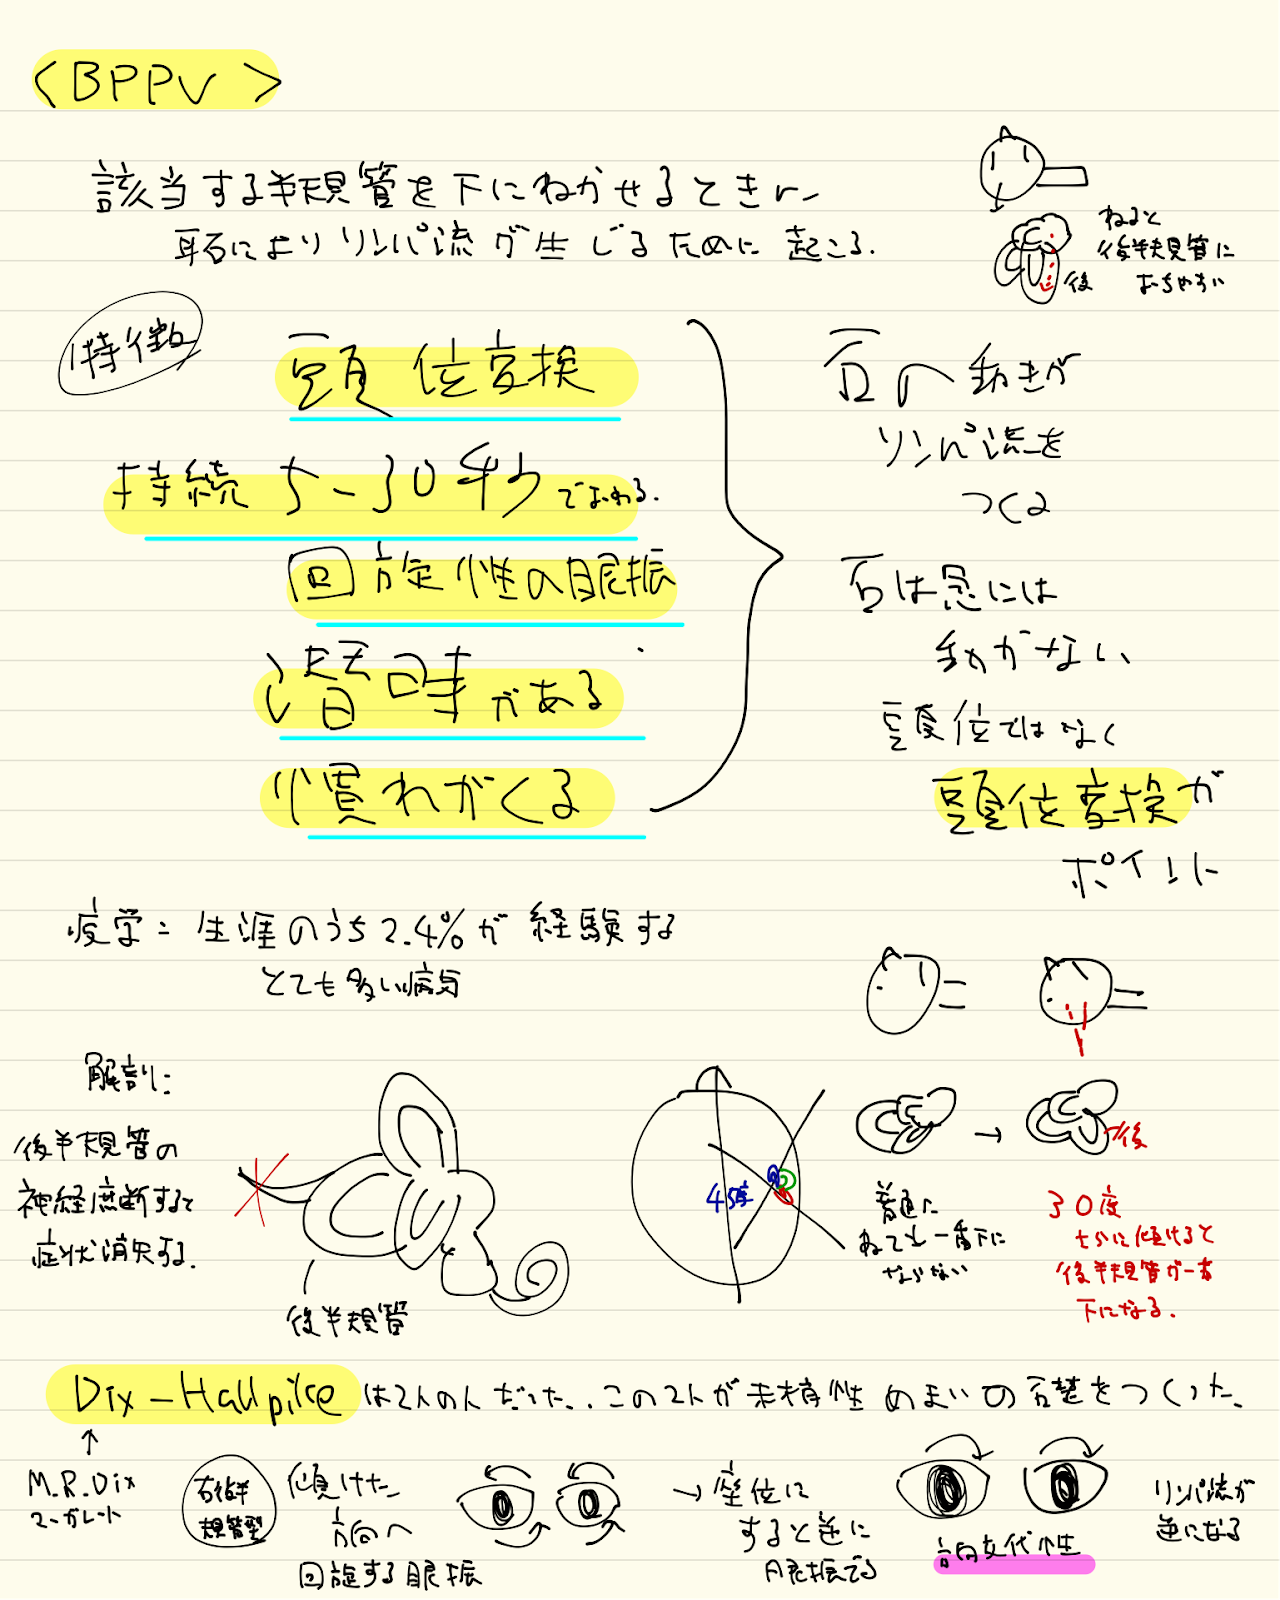 <BPPV>
該当する半規管を下にねかせるときに
耳石によりリンパ流が生じるために起こる.
ねると
後半規管に
おちやすい
後
特徴
頭位変換
持続 5-30秒でおわる.
回旋性の眼振
潜時がある
慣れがくる
石の動きが
リンパ流を
つくる
石は急には
動かない
頭位ではなく
頭位変換が
ポイント
疫学: 生涯のうち2.4%が経験する
とても多い病気
解剖:
後半規管の
神経遮断すると
症状消失する.
後半規管
45度
普通に
ねても一番下に
ならない
→
後
30度
さらに傾けると
後半規管が一番
下になる.
Dix-Hallpikeは2人の人だった..この2人が末梢性めまいの石礎をつくった.
↑
M.R.Dix
マーガレット
右後半
規管型
傾けた
方向へ
回旋する眼振
→座位に
すると逆に
眼振でる
方向交代性
リンパ流が
逆になる